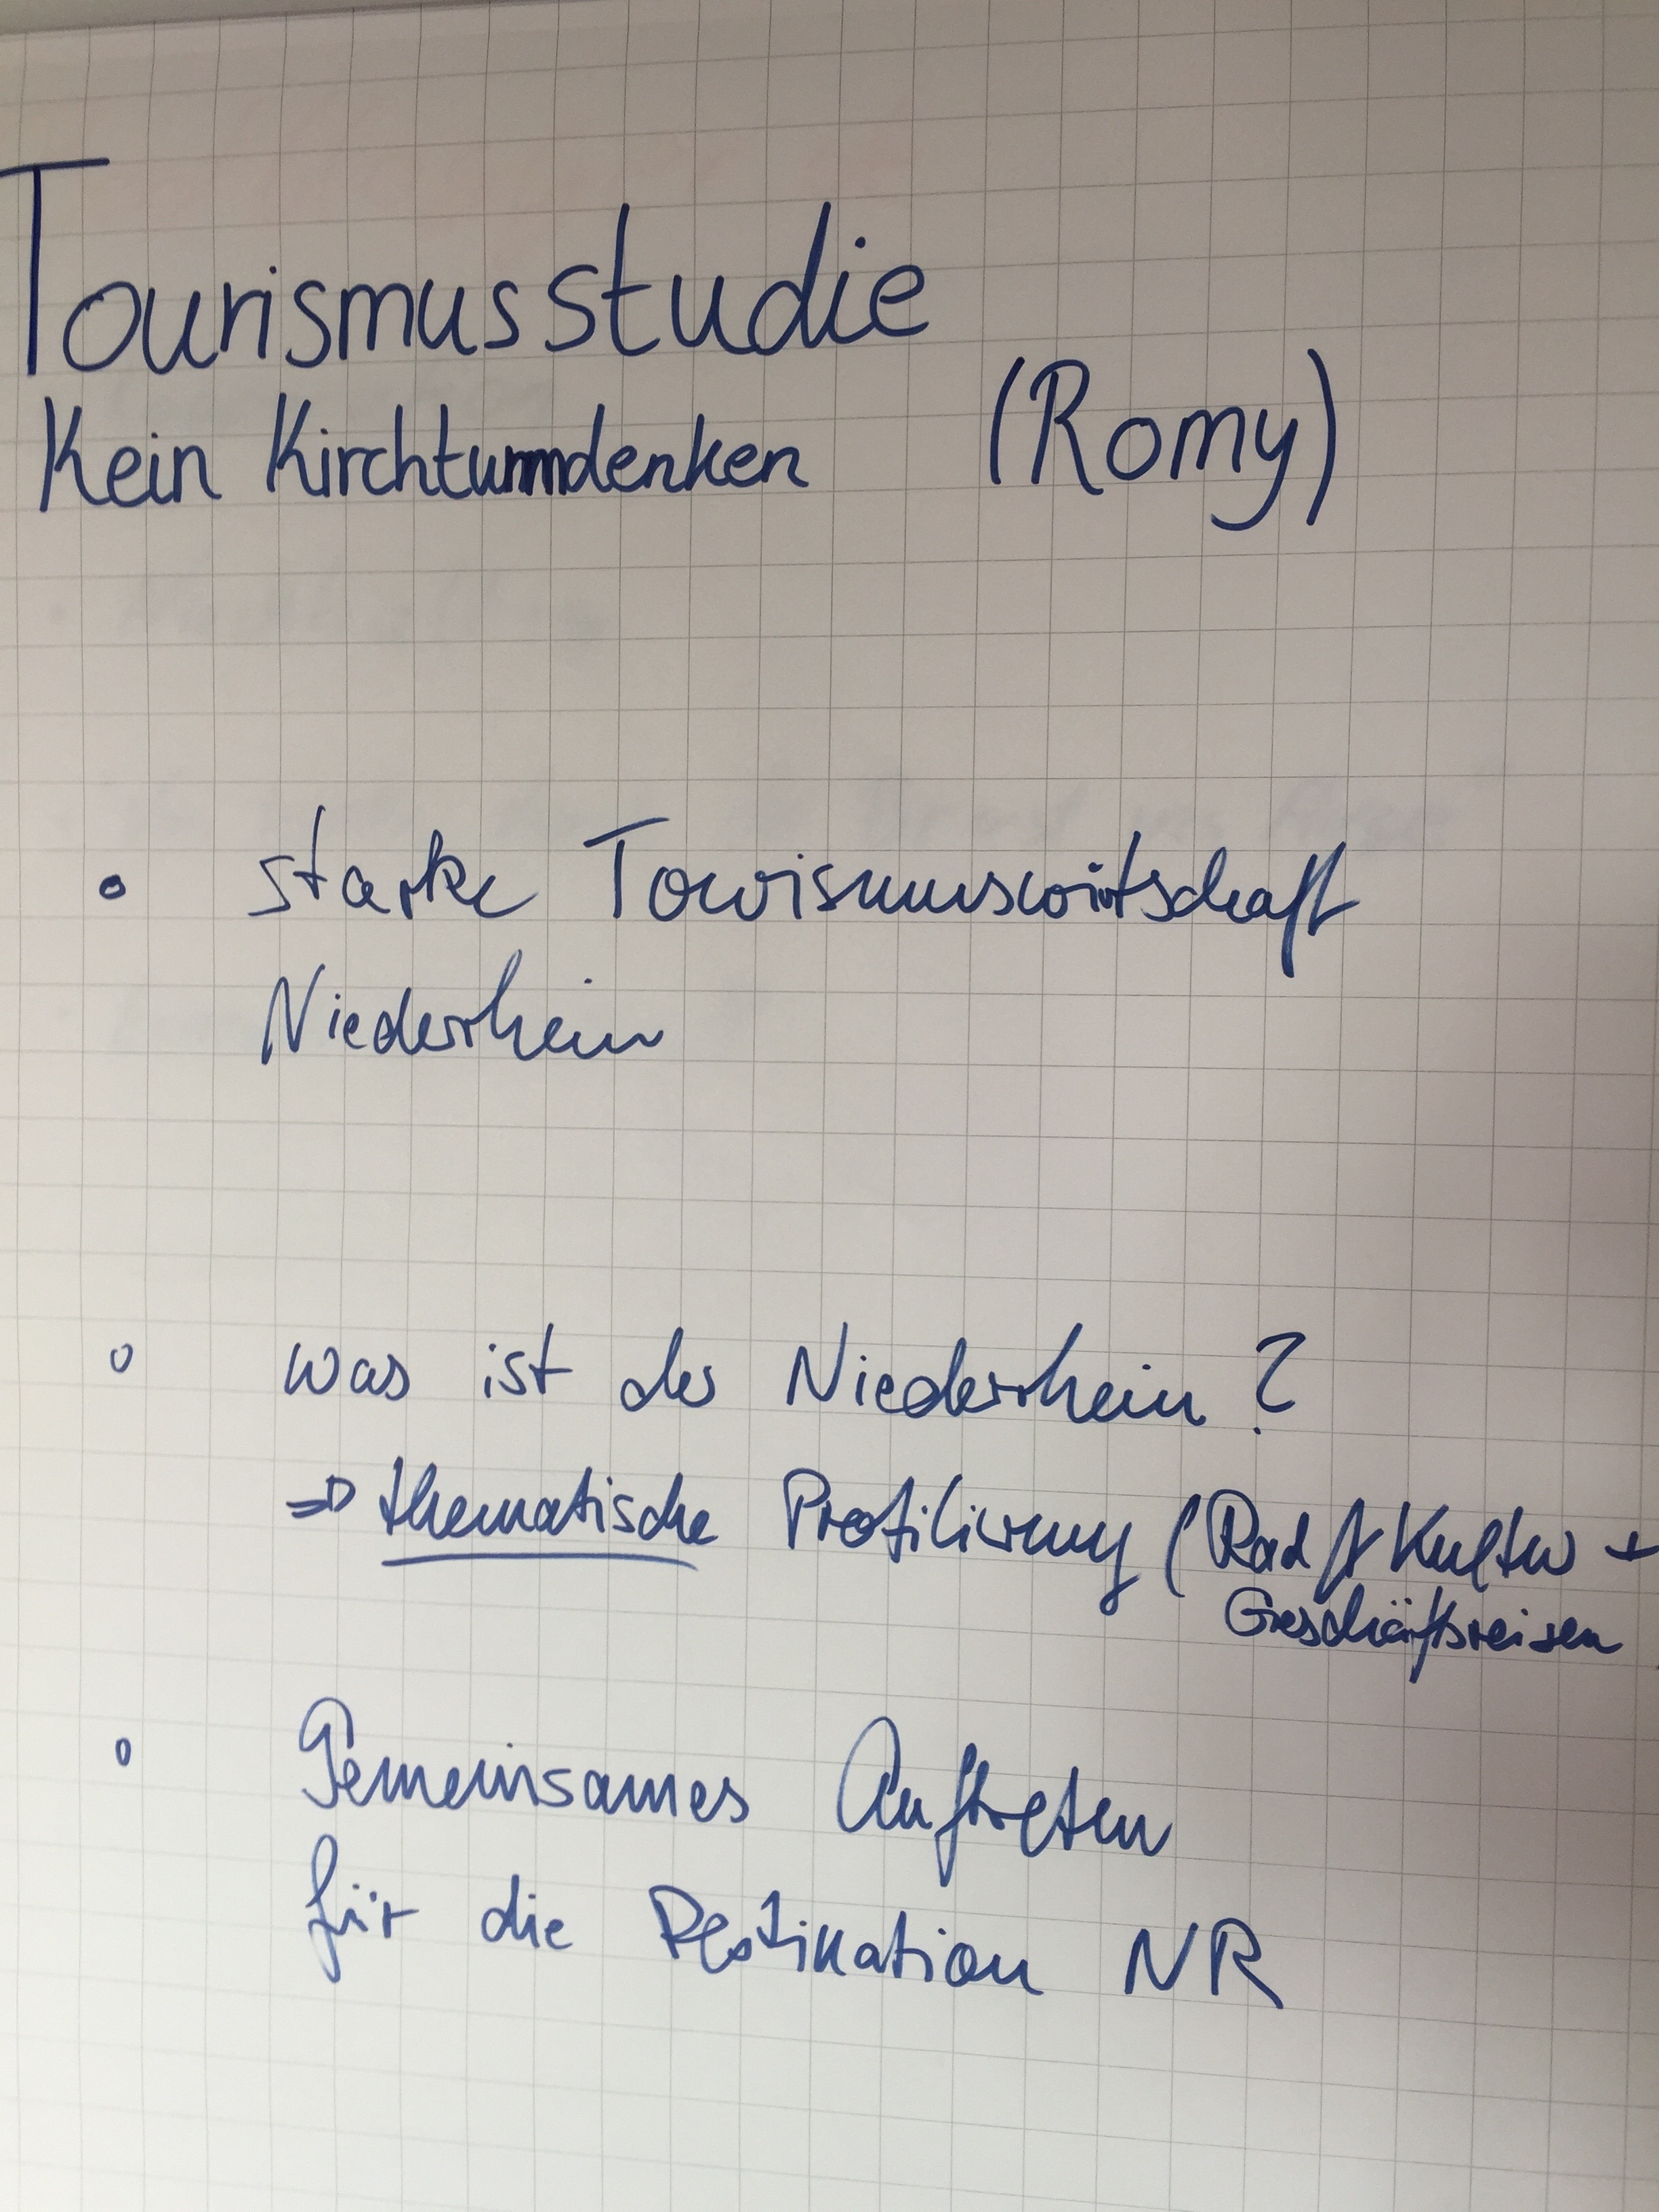 Tourismusstudie
Kein Kirchturmdenken (Romy)
• starke Tourismuswirtschaft
Niederrhein
• was ist der Niederrhein?
⇒ thematische Profilierung (Rad + Kultur +
Geschäftsreisen
• Gemeinsames Auftreten
für die Destination NR